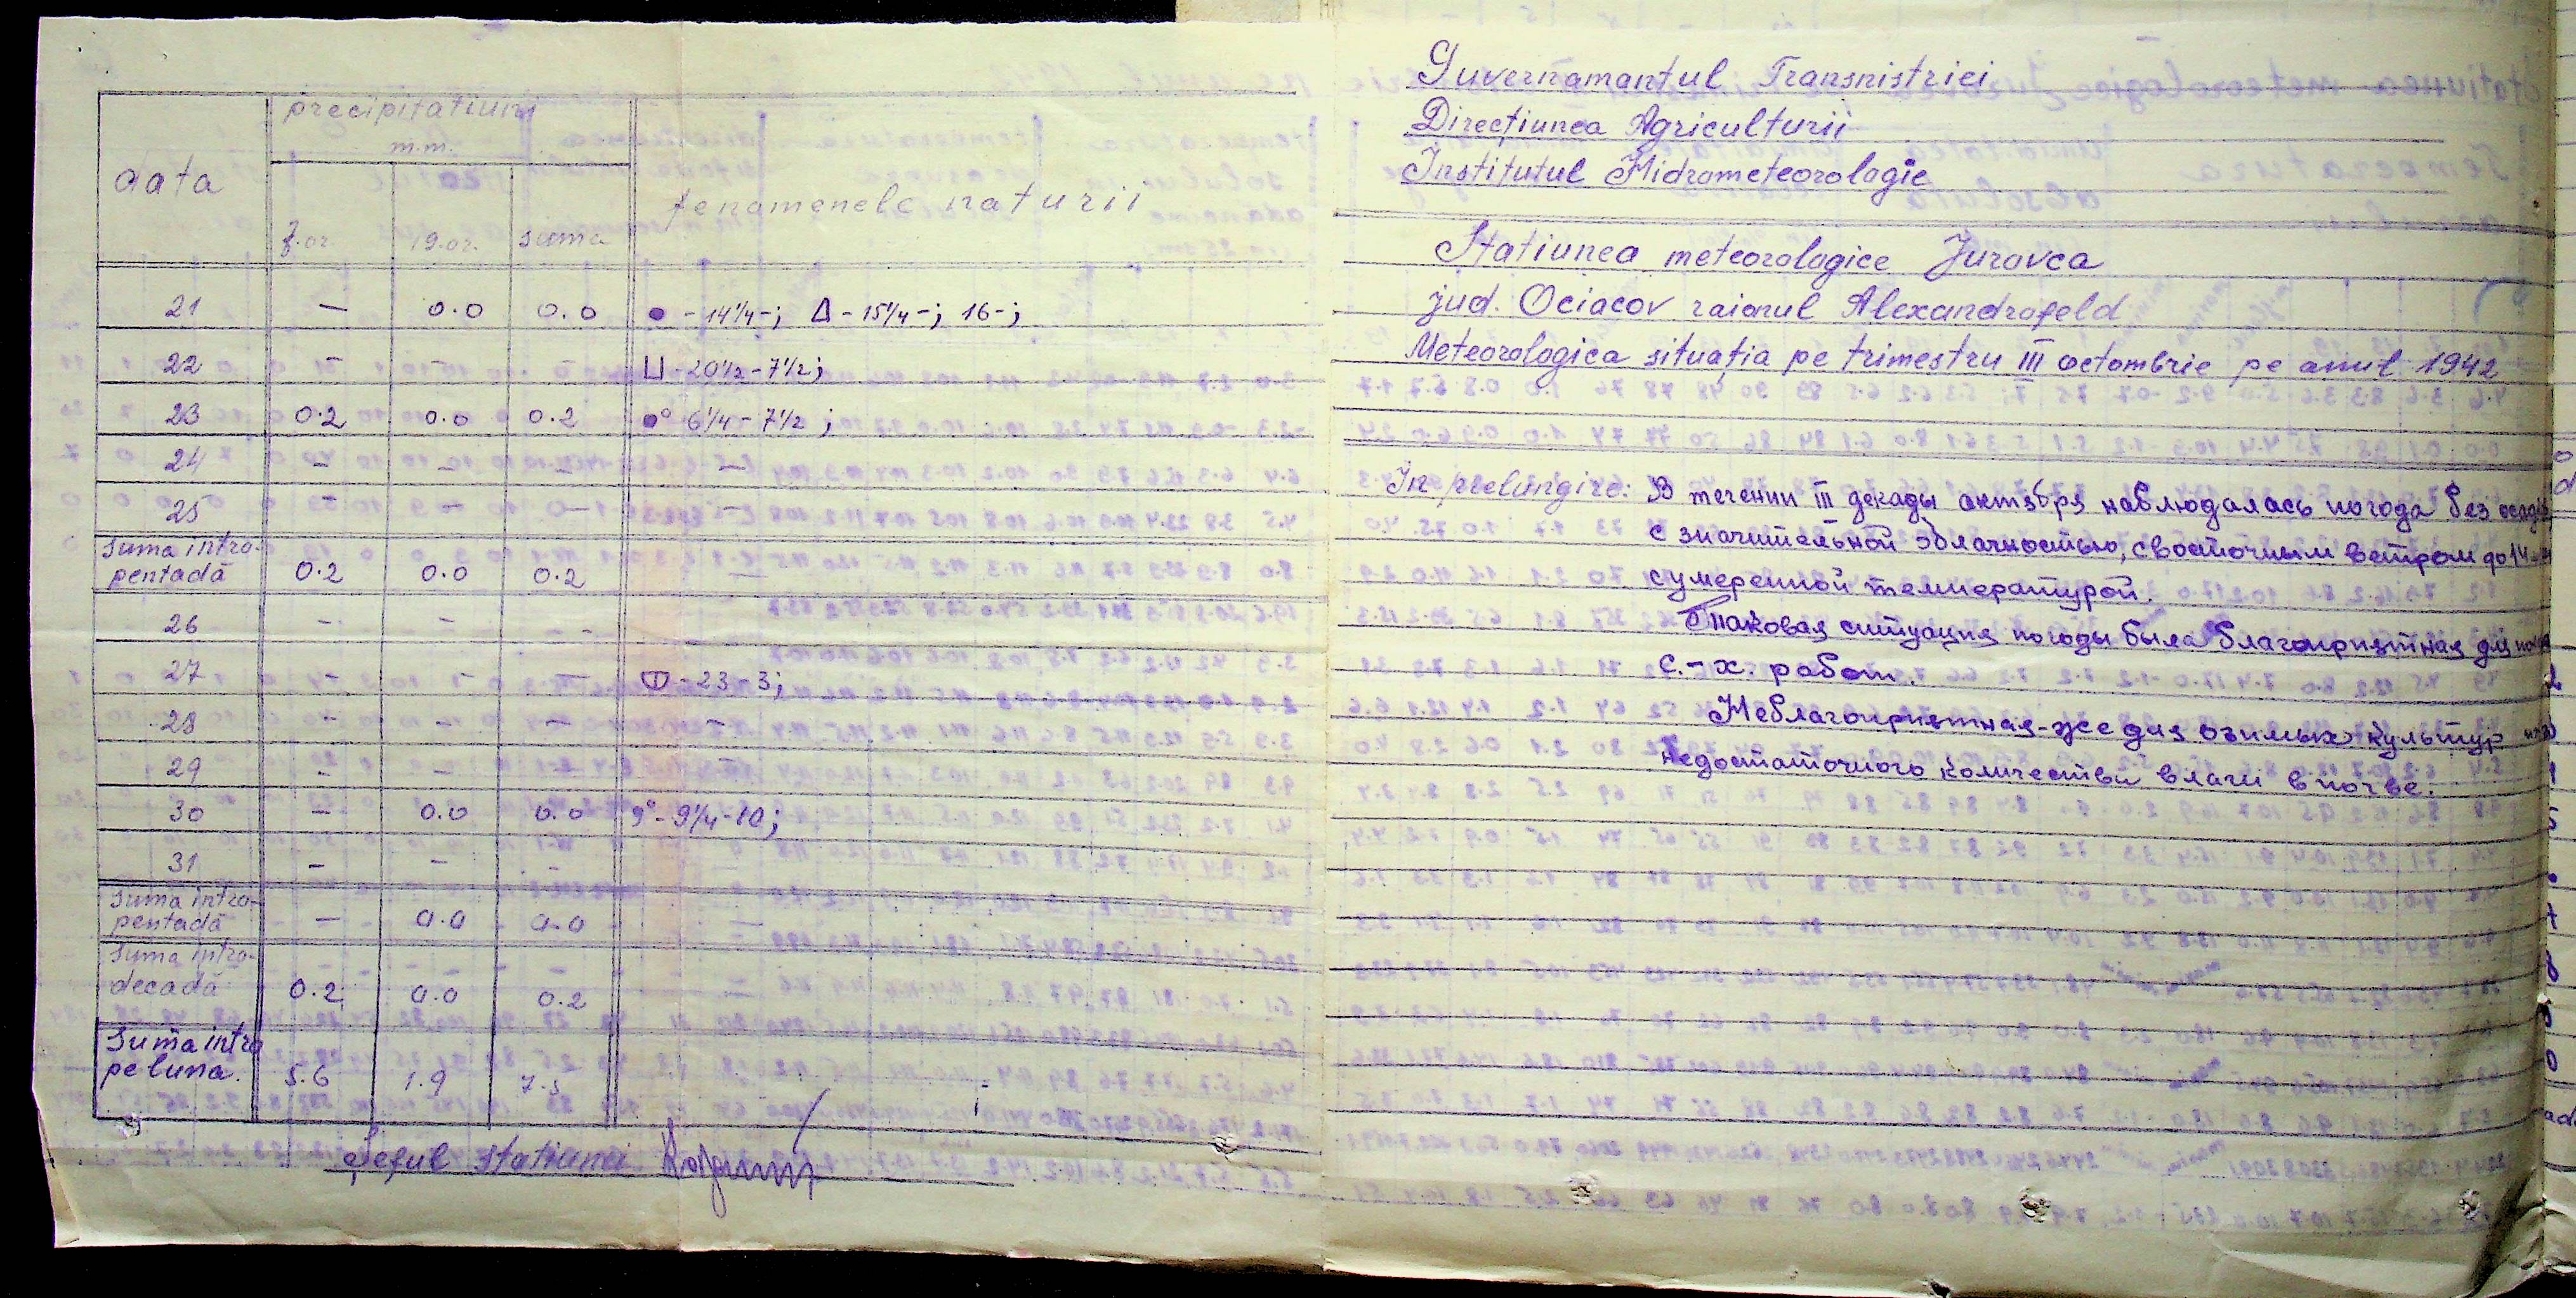 data precipitatiuni fenamenele naturii
m.m.
7.or. 19.or. suma
21 — 0.0 0.0 ● - 14¼ -; Δ - 15¼ -; 16 -;
22 — — — ⊔ - 20½ - 7½;
23 0.2 0.0 0.2 ●° 6¼ - 7½;
24 — — — —
25 — — — —
suma intra-
pentadă 0.2 0.0 0.2 —
26 — — — —
27 — — — - 23 - 3;
28 — — — —
29 — — — —
30 — 0.0 0.0 9° - 9¼ - 10;
31 — — — —
suma intra-
pentadă — 0.0 0.0 —
suma intra-
decadă 0.2 0.0 0.2 —
suma intra
pe luna. 5.6 1.9 7.5
Șeful statiunei
Guvernamantul Transnistriei
Direcțiunea Agriculturii
Institutul Hidrometeorologic
Statiunea meteorologice Jurovca
jud. Ociacov raionul Alexandrofeld
Meteorologica situația pe trimestru III octombrie pe anul 1942
In prelungire: В течении III декады октября наблюдалась погода без
с значительной облачностью, с восточным ветром до 14
с умеренной температурой.
Таковая ситуация погоды была благоприятная для
с.-х. работ.
Неблагоприятная-же для озимых культур
недостаточного количества влаги в почве.